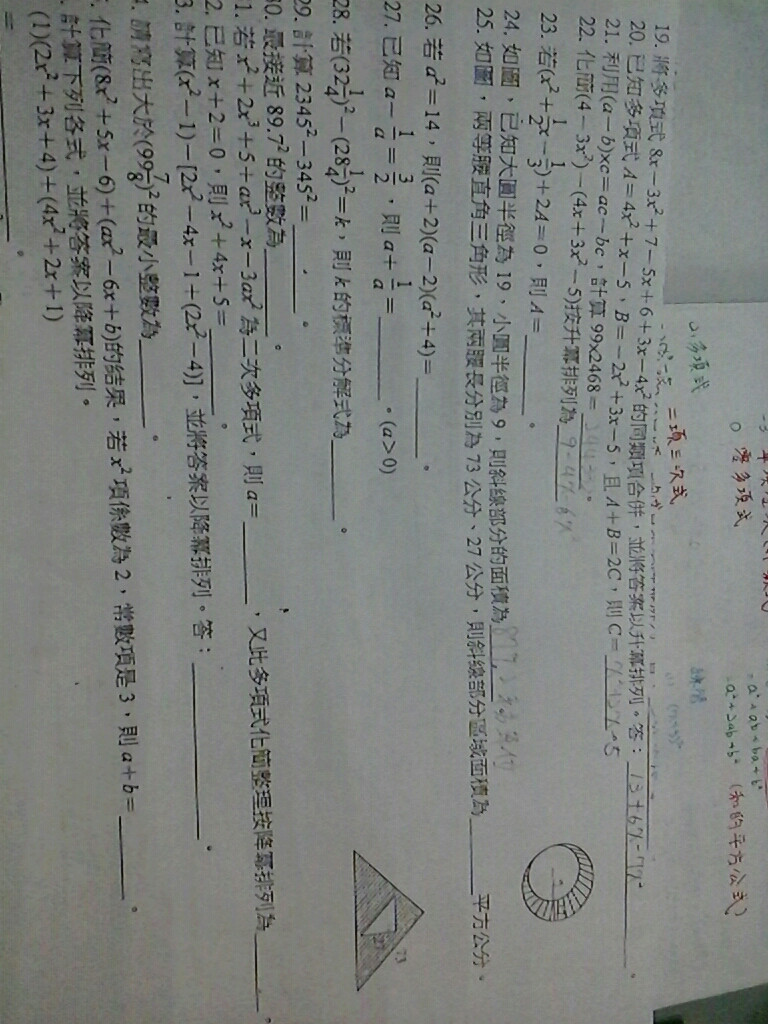 零多項式
0
=a²+ab+ba+b²
=a²+2ab+b² (和的平方公式)
多項式
二項三次式
19. 將多項式 8x-3x²+7-5x+6+3x-4x² 的同類項合併，並將答案以升冪排列。答：13+6x-7x²。
20. 已知多項式 A=4x²+x-5，B=-2x²+3x-5，且 A+B=2C，則 C=x²+2x-5
21. 利用(a-b)×c=ac-bc，計算 99×2468=。
22. 化簡(4-3x²)-(4x+3x²-5)按升冪排列為 9-4x-6x²
23. 若(x²+1/2x-1/3)+2A=0，則 A=______。
24. 如圖，已知大圓半徑為 19，小圓半徑為 9，則斜線部分的面積為
25. 如圖，兩等腰直角三角形，其兩腰長分別為 73 公分、27 公分，則斜線部分區域面積為______平方公分。
73
27
26. 若 a²=14，則(a+2)(a-2)(a²+4)=______。
27. 已知 a-1/a=3/2，則 a+1/a=______。(a>0)
28. 若(32 1/4)²-(28 1/4)²=k，則 k 的標準分解式為______。
29. 計算 2345²-345²=______。
30. 最接近 89.7² 的整數為______。
1. 若 x²+2x³+5+ax³-x-3ax² 為二次多項式，則 a=______，又此多項式化簡整理按降冪排列為______。
2. 已知 x+2=0，則 x²+4x+5=______。
3. 計算(x²-1)-[2x²-4x-1+(2x²-4)]，並將答案以降冪排列。答：______。
4. 請寫出大於(99 7/8)²的最小整數為______。
. 化簡(8x²+5x-6)+(ax²-6x+b)的結果，若 x² 項係數為 2，常數項是 3，則 a+b=______。
. 計算下列各式，並將答案以降冪排列。
(1)(2x²+3x+4)+(4x²+2x+1)
=______。